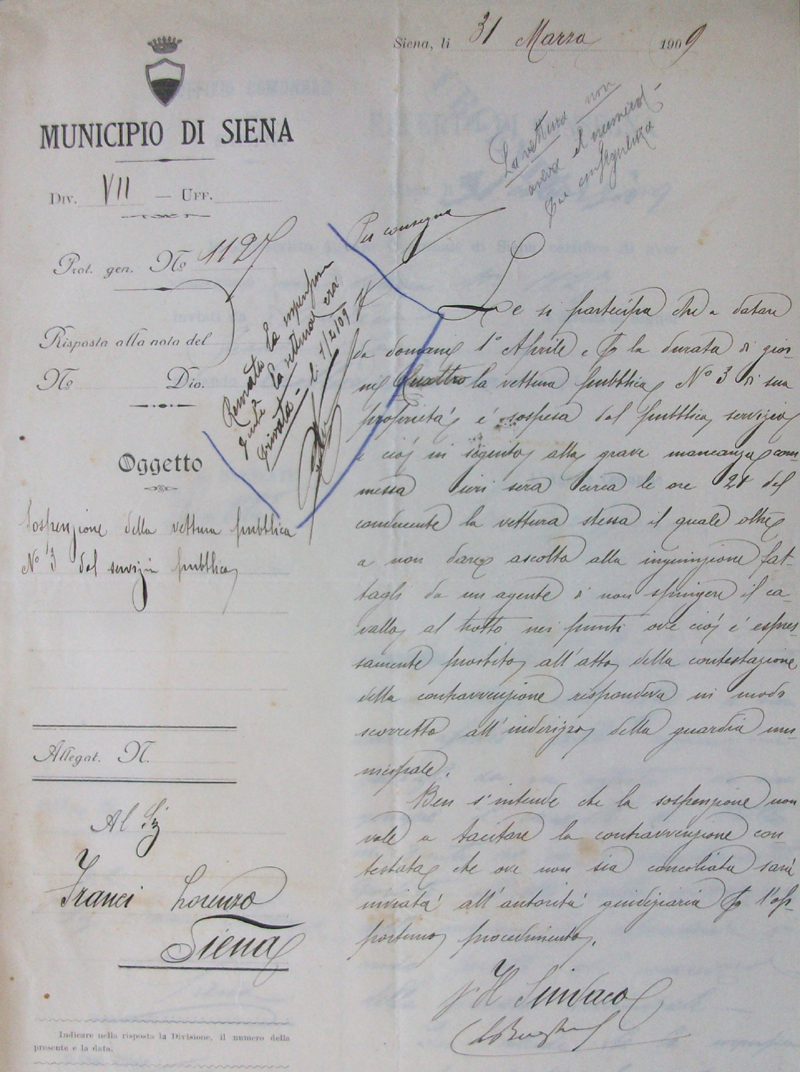 Siena, li 31 Marzo 1909
MUNICIPIO DI SIENA
Div. VII — Uff.
Prot. gen. No 1127
Risposta alla nota del
No Div.
Oggetto
Sospenzione della vettura pubblica
No 3 dal servizio pubblico
Allegat. N.
Al Sig
Franci Lorenzo
Siena
Indicare nella risposta la Divisione, il numero della
presente e la data.
La vettura non
aveva il numero
Per consegna
Le si partecipa che a datare
da domani 1º Aprile e per la durata di gior-
ni Quattro la vettura pubblica No 3 di sua
proprietà è sospesa dal pubblico servizio
e ciò in seguito alla grave mancanza com-
messa ieri sera circa le ore 21 dal
conducente la vettura stessa il quale oltre
a non dare ascolto alla ingiunzione fat-
tagli da un agente di non spingere il ca-
vallo al trotto nei punti ove ciò è espres-
samente proibito, all'atto della contestazione
della contravvenzione rispondeva in modo
scorretto all'indirizzo della guardia mu-
nicipale.
Ben s'intende che la sospenzione non
vale a tacitare la contravvenzione con-
testata che ove non sia conciliata sarà
inviata all'autorità giudiziaria per l'op-
portuno procedimento.
Il Sindaco